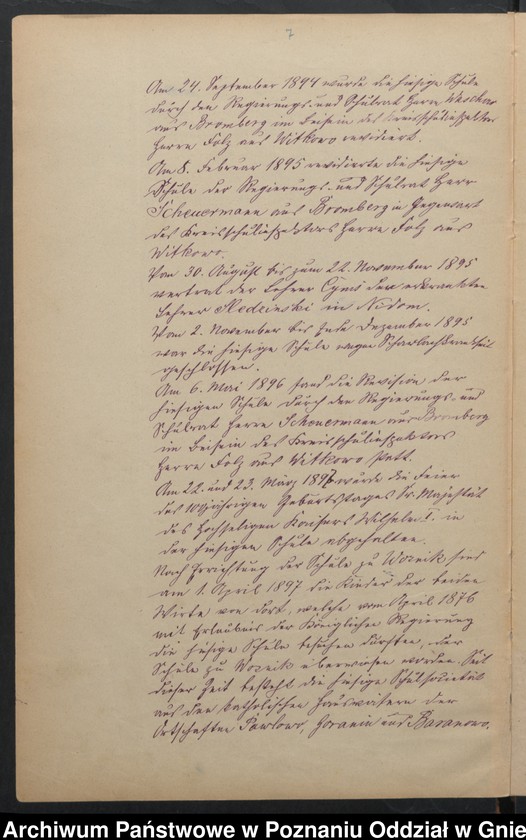 7
Am 24. September 1894 wurde die hiesige Schule
durch den Regierungs- und Schulrat Herrn Waschow
aus Bromberg im Beisein des Kreisschulinspektors
Herrn Folz aus Witkowo revidiert.
Am 8. Februar 1895 revidierte die hiesige
Schule der Regierungs- und Schulrat Herr
Scheuermann aus Bromberg in Gegenwart
des Kreisschulinspektors Herrn Folz aus
Witkowo.
Vom 30. August bis zum 22. November 1895
vertrat der Lehrer Cyms den erkrankten
Lehrer in Nidom.
Vom 2. November bis Ende Dezember 1895
war die hiesige Schule wegen Scharlachkrankheit
geschlossen.
Am 6. Mai 1896 fand die Revision der
hiesigen Schule durch den Regierungs- und
Schulrat Herrn Scheuermann aus Bromberg
im Beisein des Kreisschulinspektors
Herrn Folz aus Witkowo statt.
Am 22. und 23. März 1897 wurde die Feier
des 100jährigen Geburtstages Sr. Majestät
des Hochseligen Kaisers Wilhelm I. in
der hiesigen Schule abgehalten.
Nach Errichtung der Schule zu Woznik sind
am 1. April 1897 die Kinder der beiden
Wirte von dort, welche vom April 1876
mit Erlaubnis der Königlichen Regierung
die hiesige Schule besuchen durften, der
Schule zu Woznik überwiesen worden. Seit
dieser Zeit besteht die hiesige Schulsocietät
aus den katholischen Hausvätern der
Ortschaften Pawlowo, Goranin und Baranowo.
Archiwum Państwowe w Poznaniu Oddział w Gnie